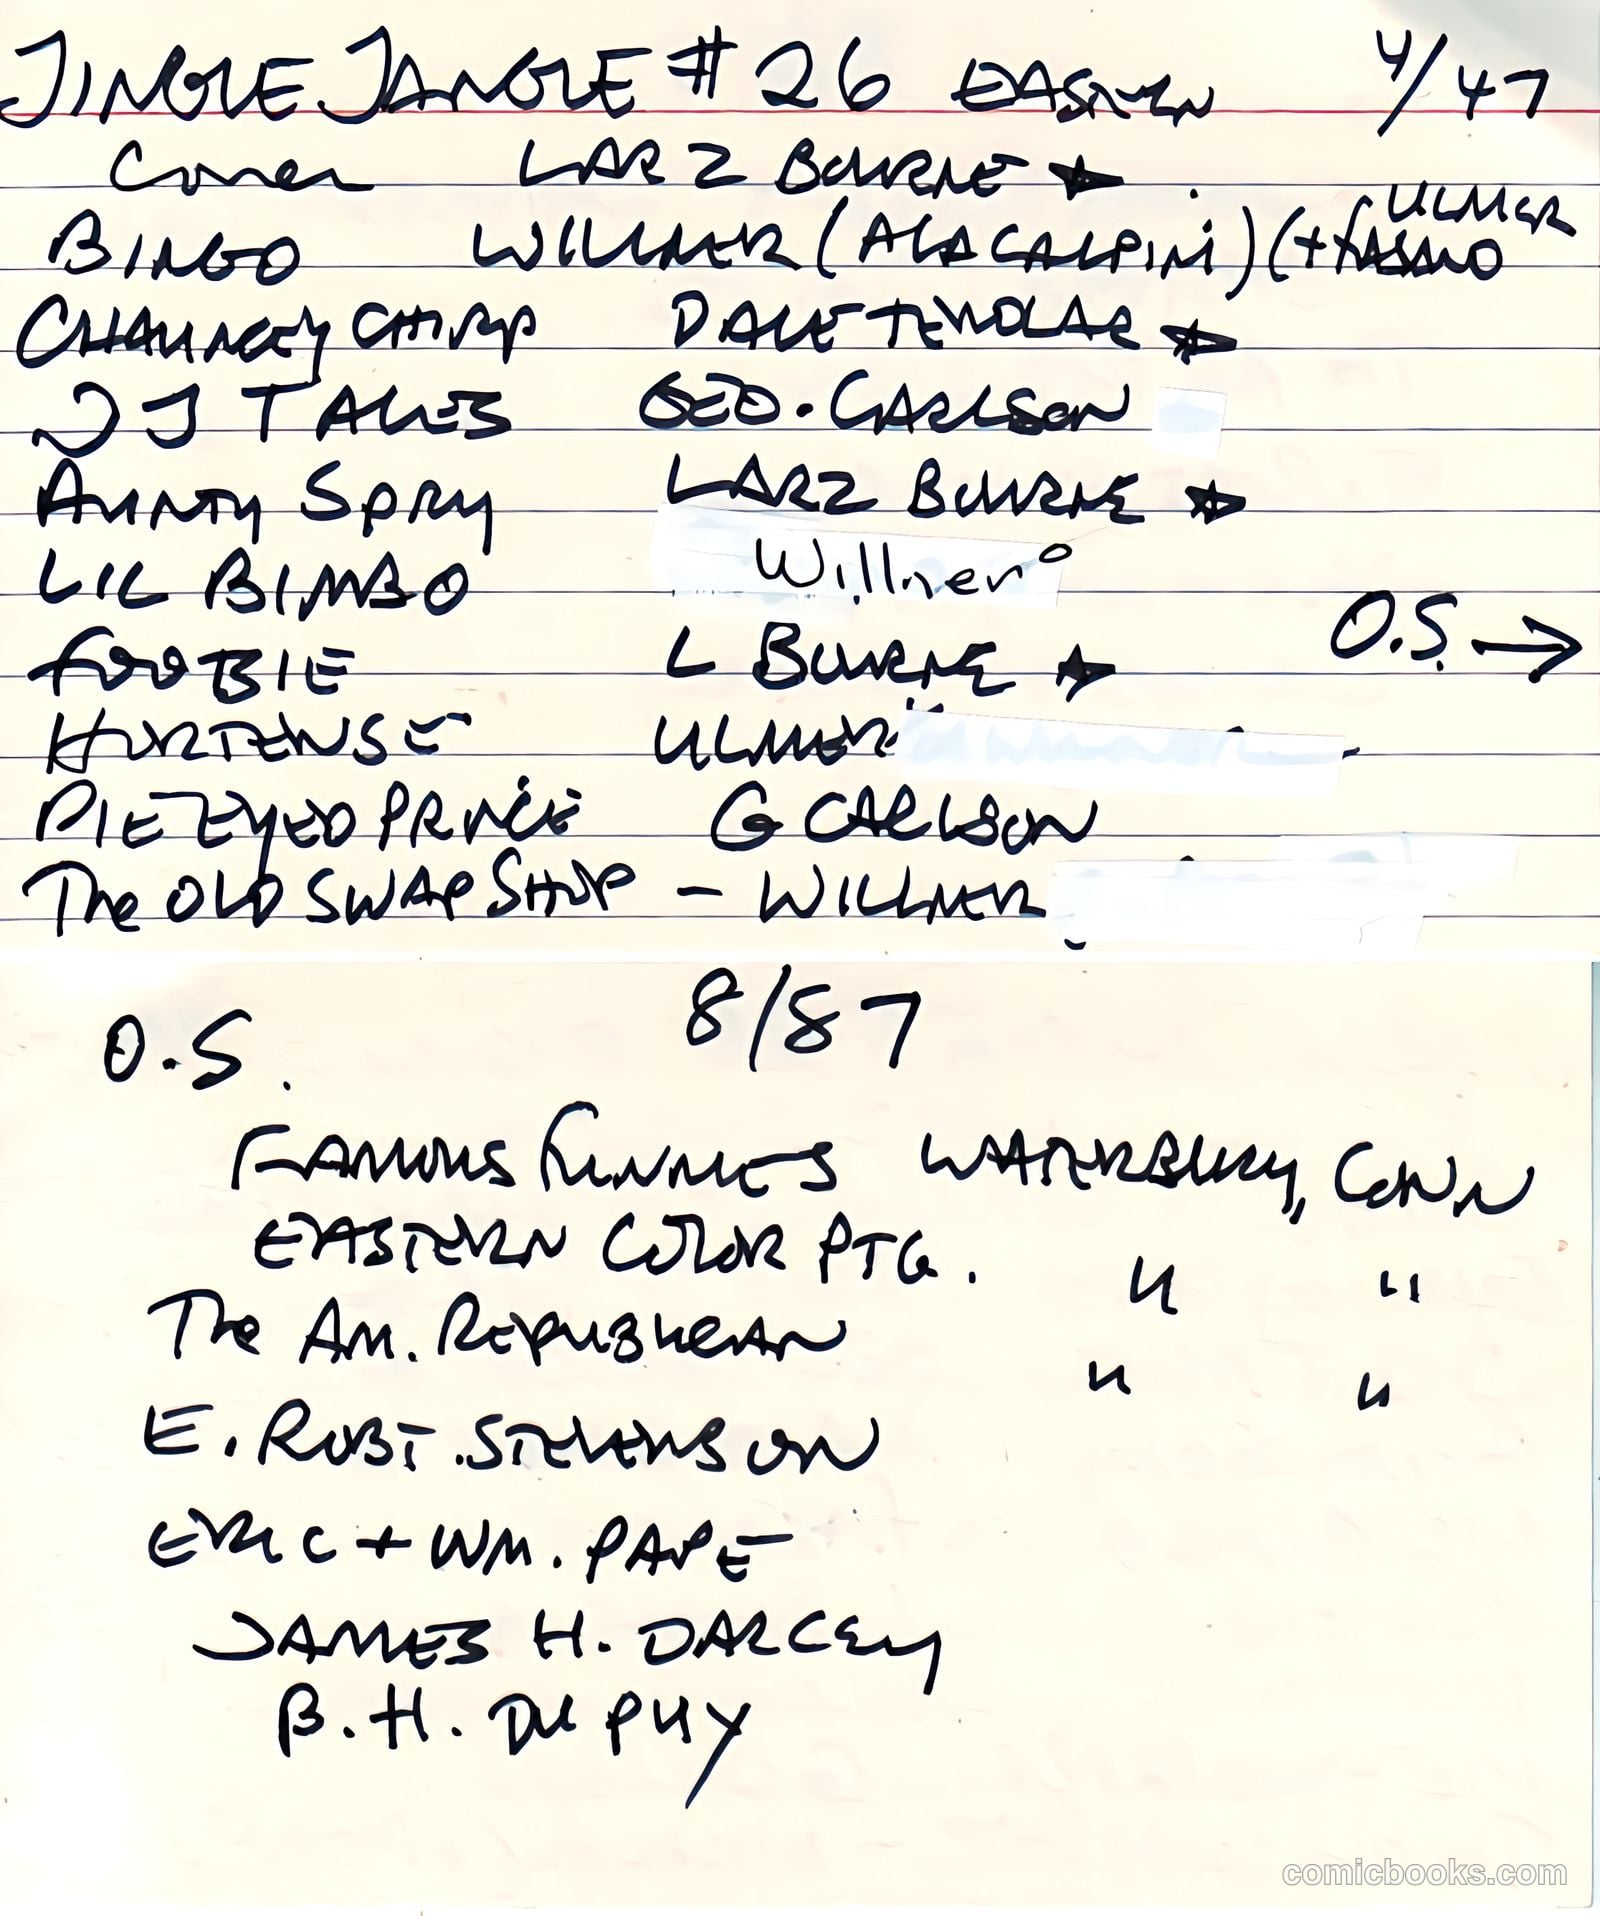 JINGLE JANGLE # 26 EASTERN 4/47
Cover LARZ BOURNE ★
BINGO WILLNER (ALACALPINI) (+ FASANO ULMER
CHAUNCEY CHIRP DAVE TENDLAR ★
JJ TALES GEO. CARLSON
AUNTY SPRY LARZ BOURNE ★
LIL BIMBO Willner
FOOBIE L BOURNE ★ O.S. →
HORTENSE ULMER
PIE EYED PRINCE G CARLSON
The OLD SWAP SHOP – WILLNER
8/87
O.S.
FAMOUS FUNNIES WATERBURY, CONN
EASTERN COLOR PTG. " "
The AM. REPUBLICAN " "
E. ROBT. STEVENSON
ERIC + WM. PAPE
JAMES H. DARCEY
B. H.
comicbooks.com